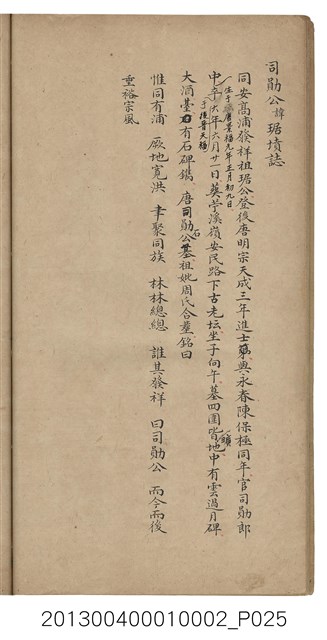 司勛公諱琚墳誌
同安高浦發祥祖琚公登後唐明宗天成三年進士第與永春陳保極同年官司勛郎
生于唐景福元年正月初九日
中卒六年六月廿一日葬苧溪嶺安民路下古老坛坐子向午墓四圍皆地中有雲過月碑
于後晉天福
石
大酒臺有石碑鐫 唐司勛公墓祖妣周氏合壟銘曰
惟同有浦 厥地寬洪 聿聚同族 林林總總 誰其發祥 曰司勛公 而今而後
重裕宗風
201300400010002_P025